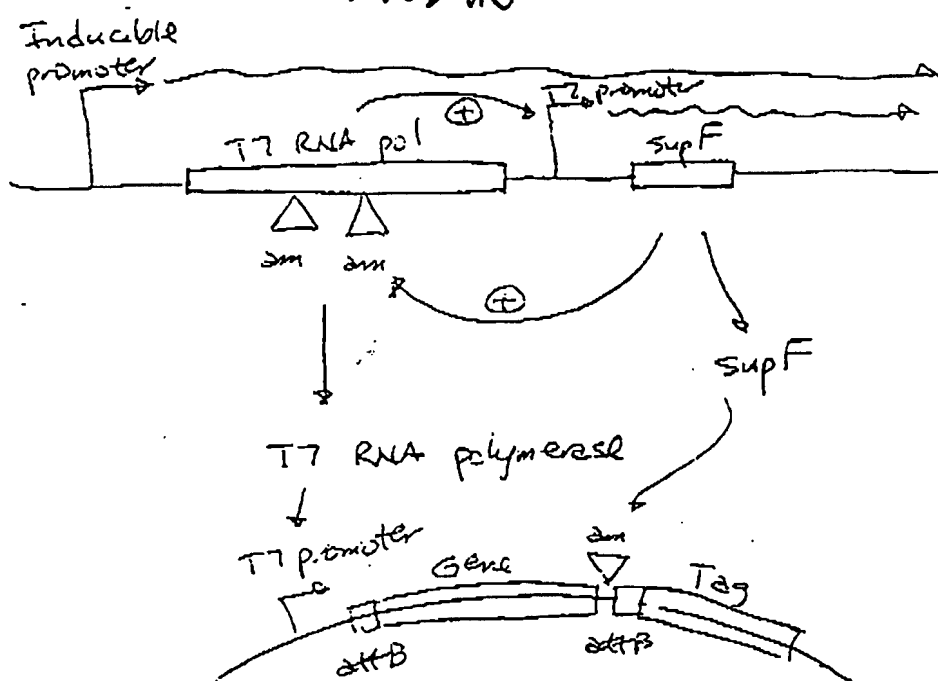 Inducible
promoter
T7 promoter
+
T7 RNA pol
supF
am am
+
supF
T7 RNA polymerase
T7 promoter
Gene
am
Tag
attB
attB